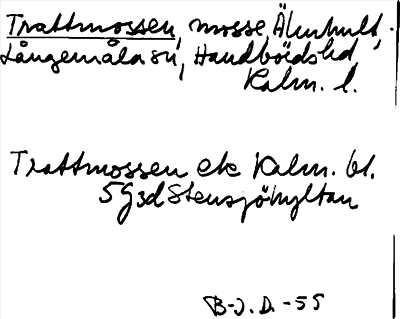 Trattmossen, mosse, Älmhult,
Långemåla sn, Handbörds hd
Kalm. l.
Trattmossen ek Kalm. bl.
5 G3d Stensjöhyltan
B-J. D. -55